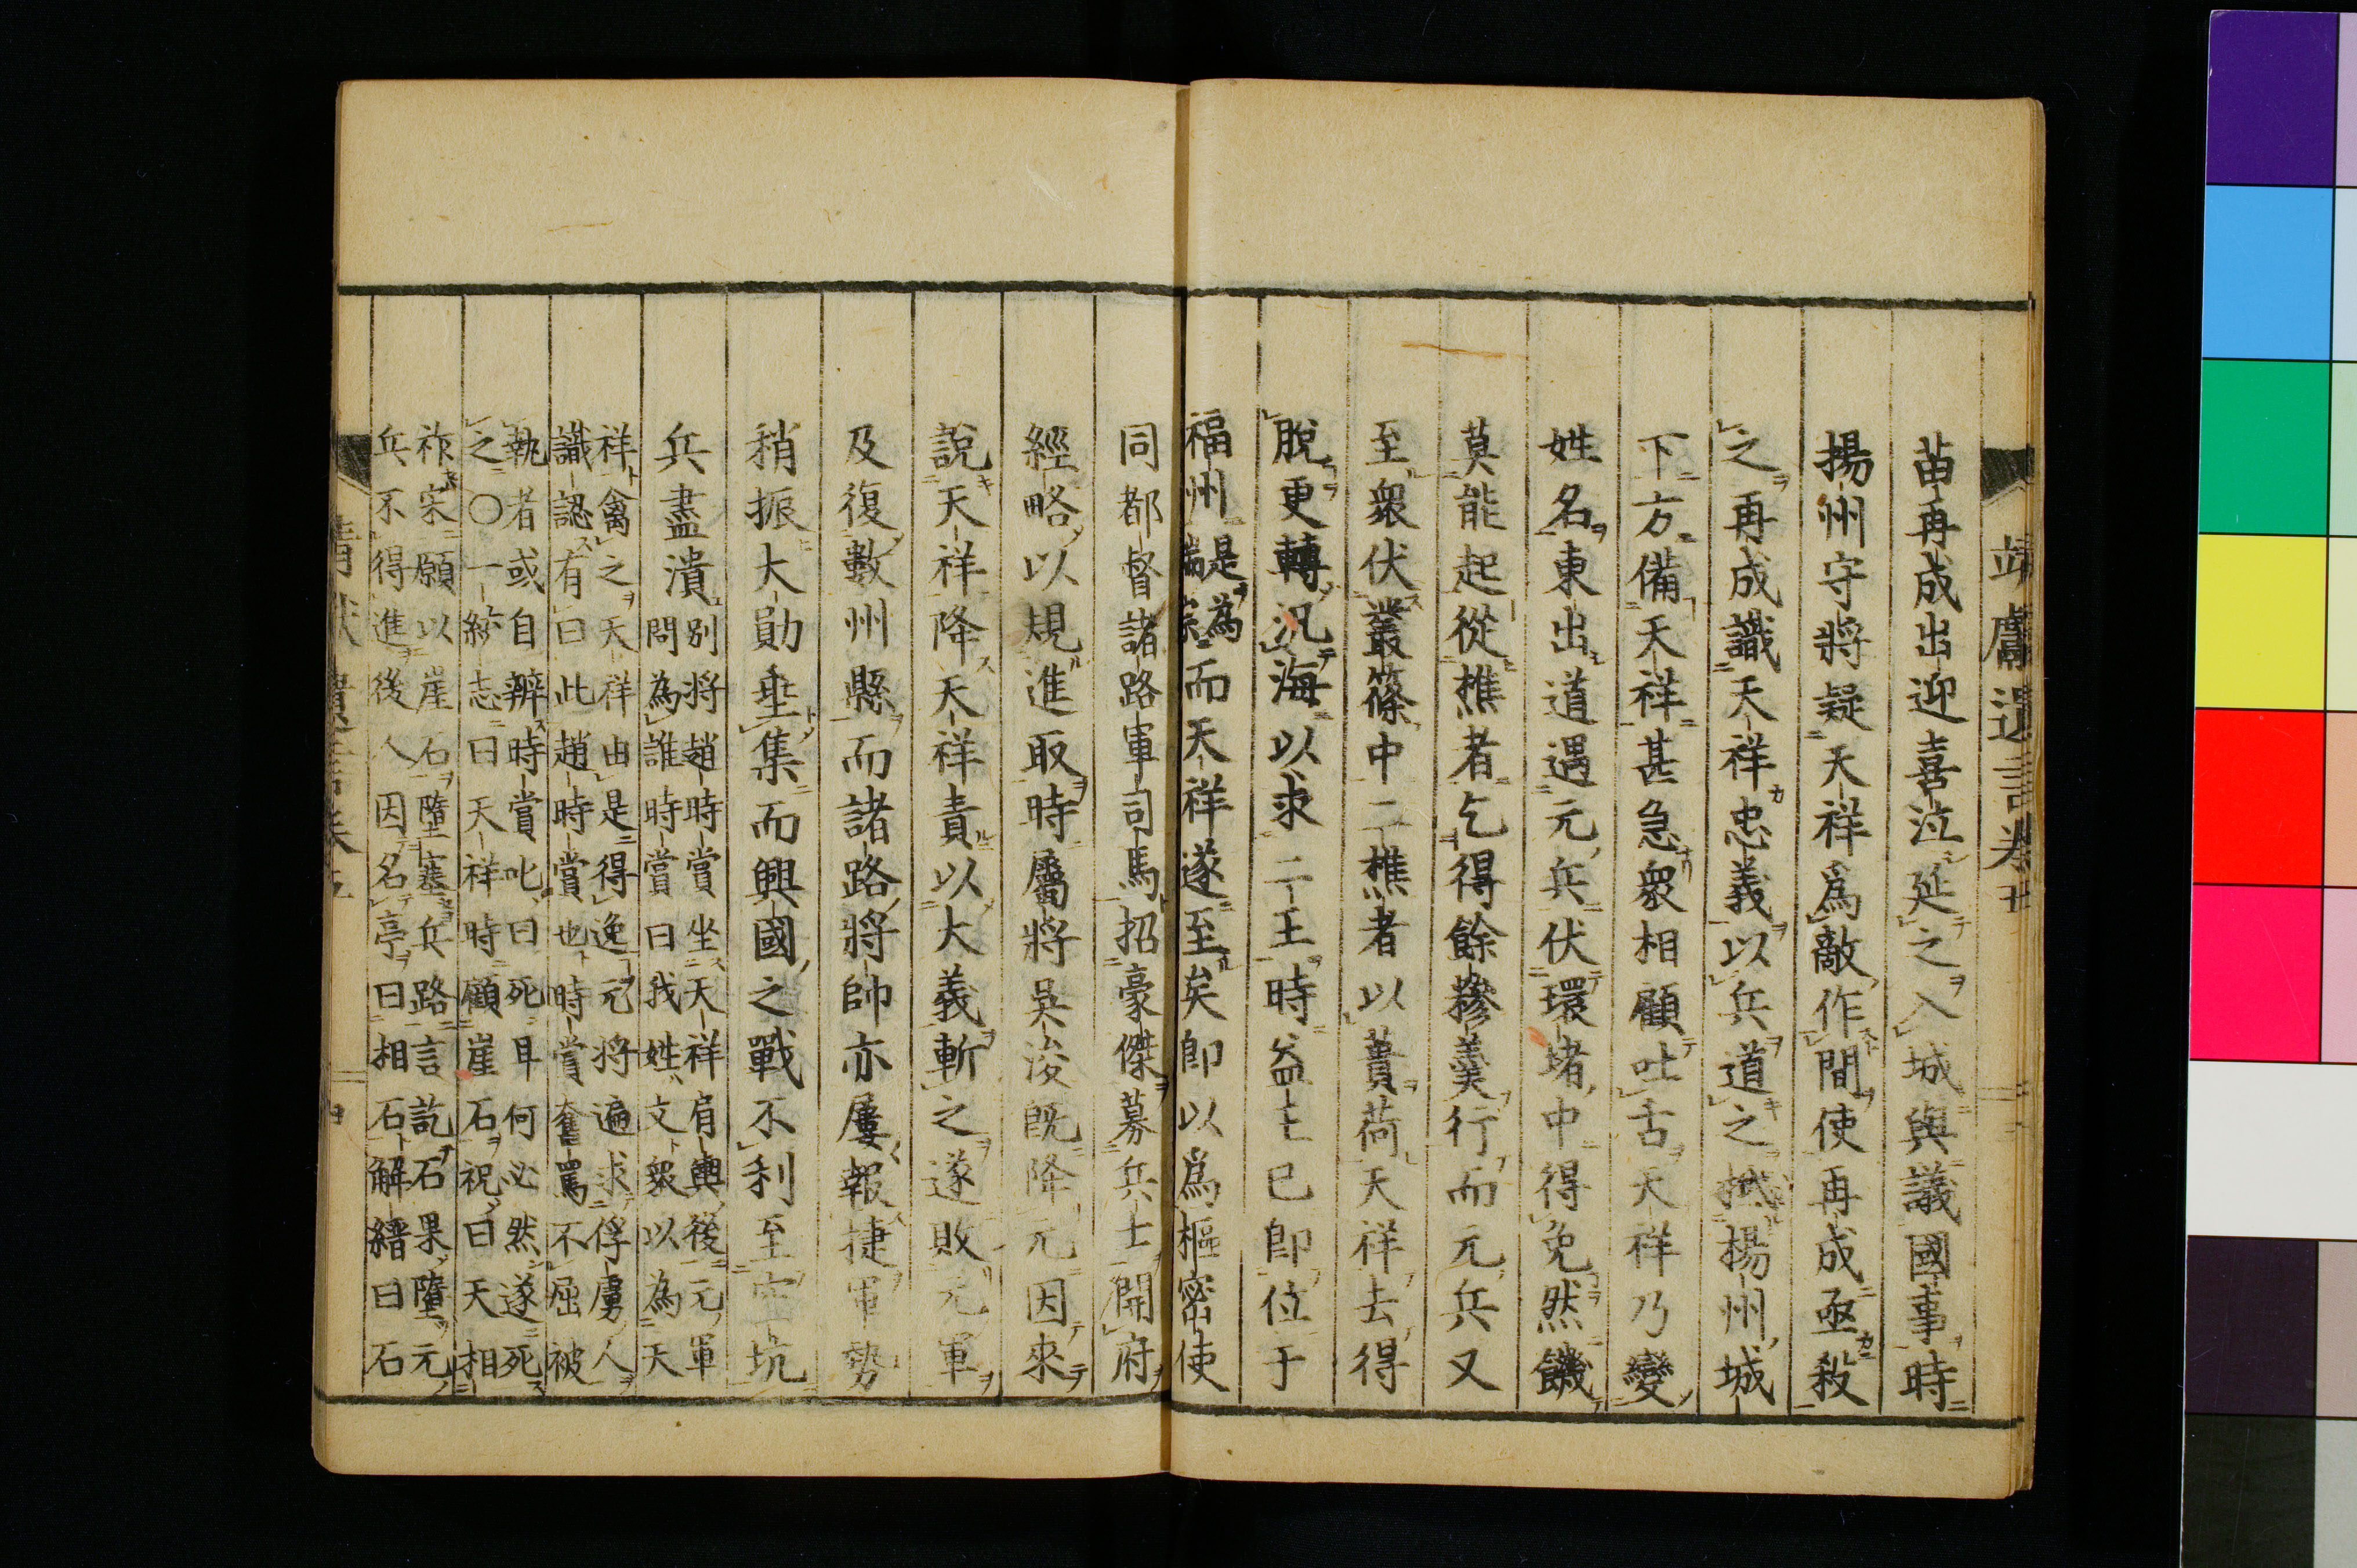 靖獻遺言卷五
苗再成出迎喜泣延之入城與議國事時
揚州守將疑天祥爲敵作間使再成亟殺
之再成識天祥忠義以兵道之抵揚州城
下方備天祥甚急衆相顧吐舌天祥乃變
姓名東出道遇元兵伏環堵中得免然饑
莫能起從樵者乞得餘糝羹行而元兵又
至衆伏叢篠中二樵者以蕢荷天祥去得
脫更轉汎海以求二王時益王已卽位于
福州是為端宗而天祥遂至矣卽以爲樞密使
同都督諸路軍司馬招豪傑募兵士開府
經略以規進取時屬將吳浚旣降元因來
說天祥降天祥責以大義斬之遂敗元軍
及復數州縣而諸路將帥亦屢報捷軍勢
稍振大勛垂集而興國之戰不利至空坑
兵盡潰別將趙時賞坐天祥肩輿後元軍
問為誰時賞曰我姓文衆以為天
祥禽之天祥由是得逸元將遍求俘虜人
識認有曰此趙時賞也時賞奮罵不屈被
執者或自辨時賞叱曰死耳何必然遂死
之○一統志曰天祥時顧崖石祝曰天相
祚宋願以崖石墮塞兵路言訖石果墮元
兵不得進後人因名亭曰相石解縉曰石
靖獻遺言卷五